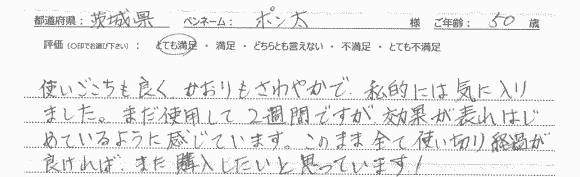 都道府県: 茨城県 ペンネーム: ポン太 様 ご年齢: 50 歳
評価 (○印でお選び下さい) : とても満足 ・ 満足 ・ どちらとも言えない ・ 不満足 ・ とても不満足
使いごこちも良く かおりもさわやかで、私的には気に入り
ました。まだ使用して2週間ですが効果が表れはじ
めているように感じています。このまま全て使い切り経過が
良ければ、また購入したいと思っています!